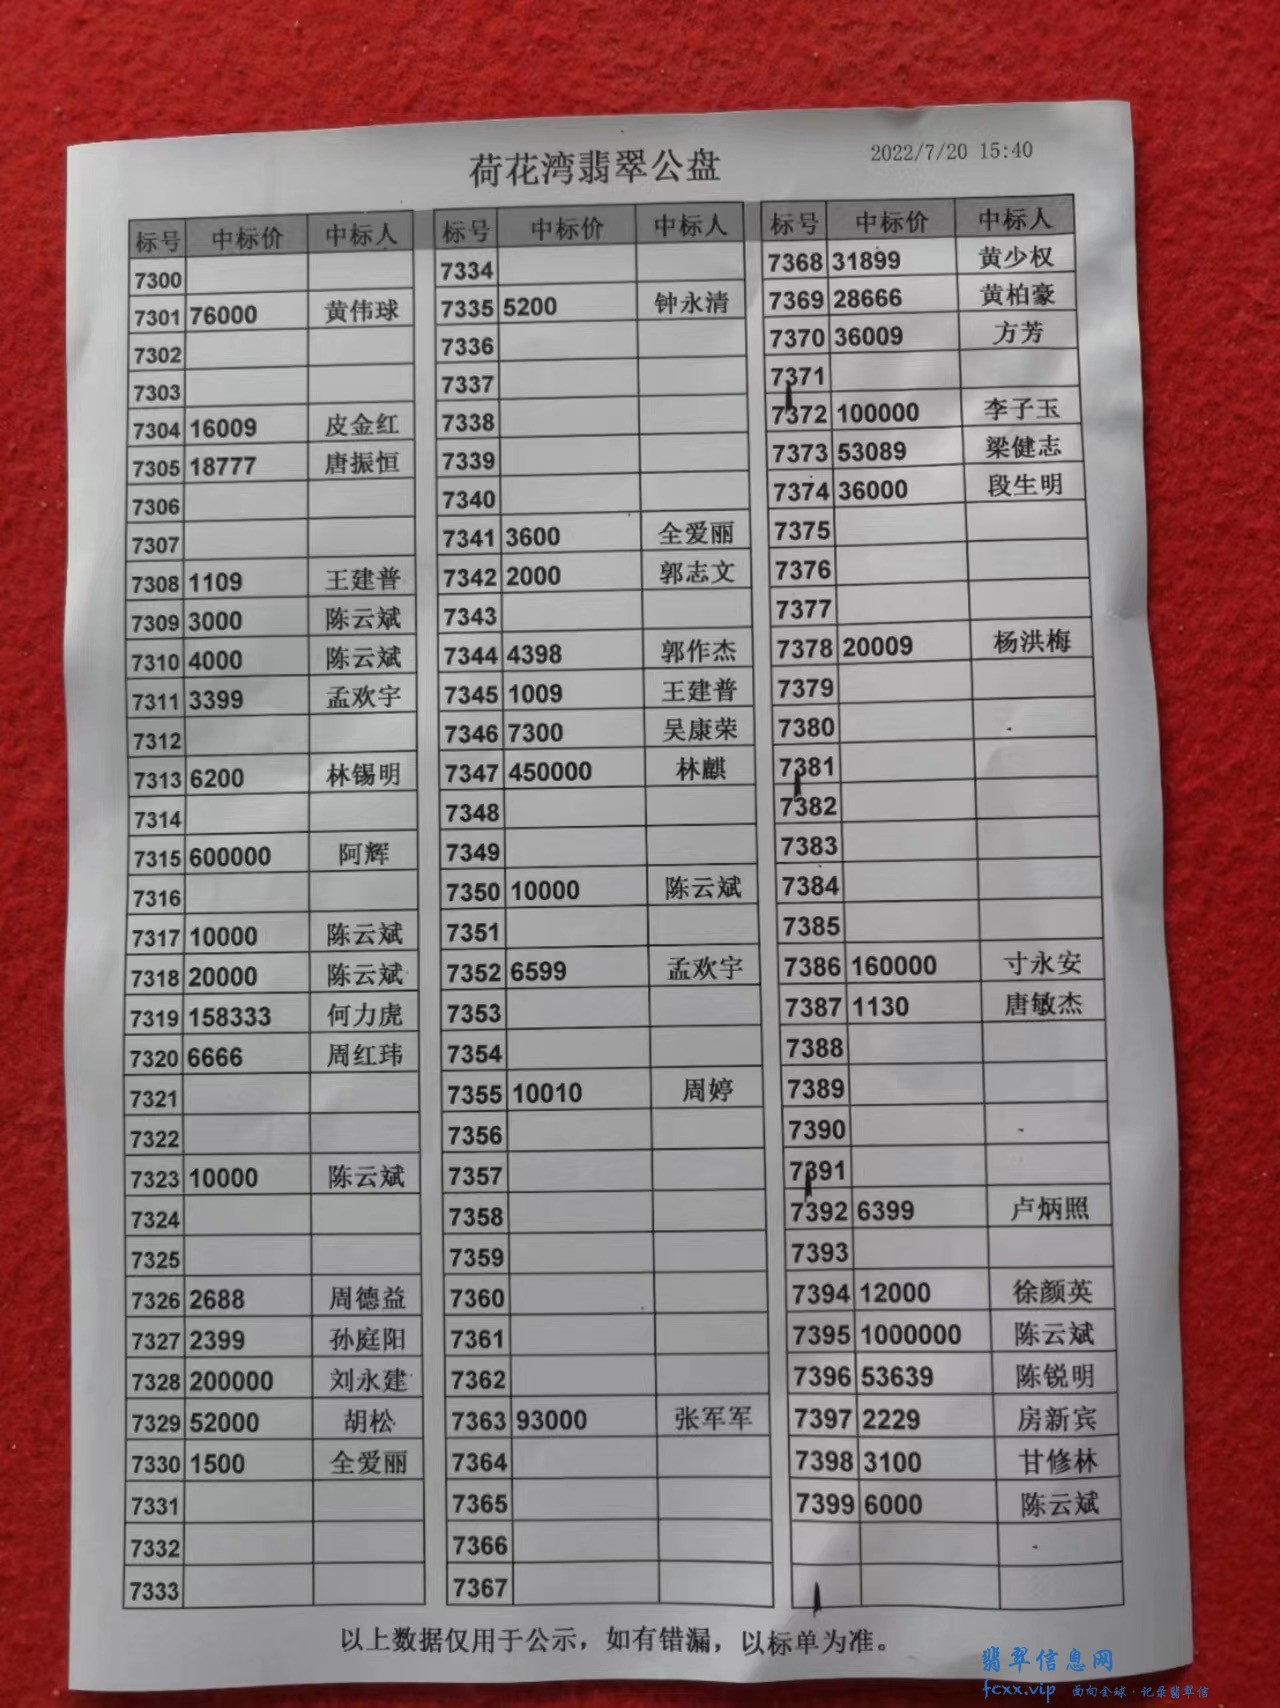 荷花湾翡翠公盘
2022/7/20 15:40
标号 中标价 中标人
7300
7301 76000 黄伟球
7302
7303
7304 16009 皮金红
7305 18777 唐振恒
7306
7307
7308 1109 王建普
7309 3000 陈云斌
7310 4000 陈云斌
7311 3399 孟欢宇
7312
7313 6200 林锡明
7314
7315 600000 阿辉
7316
7317 10000 陈云斌
7318 20000 陈云斌
7319 158333 何力虎
7320 6666 周红玮
7321
7322
7323 10000 陈云斌
7324
7325
7326 2688 周德益
7327 2399 孙庭阳
7328 200000 刘永建
7329 52000 胡松
7330 1500 全爱丽
7331
7332
7333
标号 中标价 中标人
7334
7335 5200 钟永清
7336
7337
7338
7339
7340
7341 3600 全爱丽
7342 2000 郭志文
7343
7344 4398 郭作杰
7345 1009 王建普
7346 7300 吴康荣
7347 450000 林麒
7348
7349
7350 10000 陈云斌
7351
7352 6599 孟欢宇
7353
7354
7355 10010 周婷
7356
7357
7358
7359
7360
7361
7362
7363 93000 张军军
7364
7365
7366
7367
标号 中标价 中标人
7368 31899 黄少权
7369 28666 黄柏豪
7370 36009 方芳
7371
7372 100000 李子玉
7373 53089 梁健志
7374 36000 段生明
7375
7376
7377
7378 20009 杨洪梅
7379
7380
7381
7382
7383
7384
7385
7386 160000 寸永安
7387 1130 唐敏杰
7388
7389
7390
7391
7392 6399 卢炳照
7393
7394 12000 徐颜英
7395 1000000 陈云斌
7396 53639 陈锐明
7397 2229 房新宾
7398 3100 甘修林
7399 6000 陈云斌
以上数据仅用于公示，如有错漏，以标单为准。
翡翠信息网
fcxx.vip 面向全球·记录翡翠信